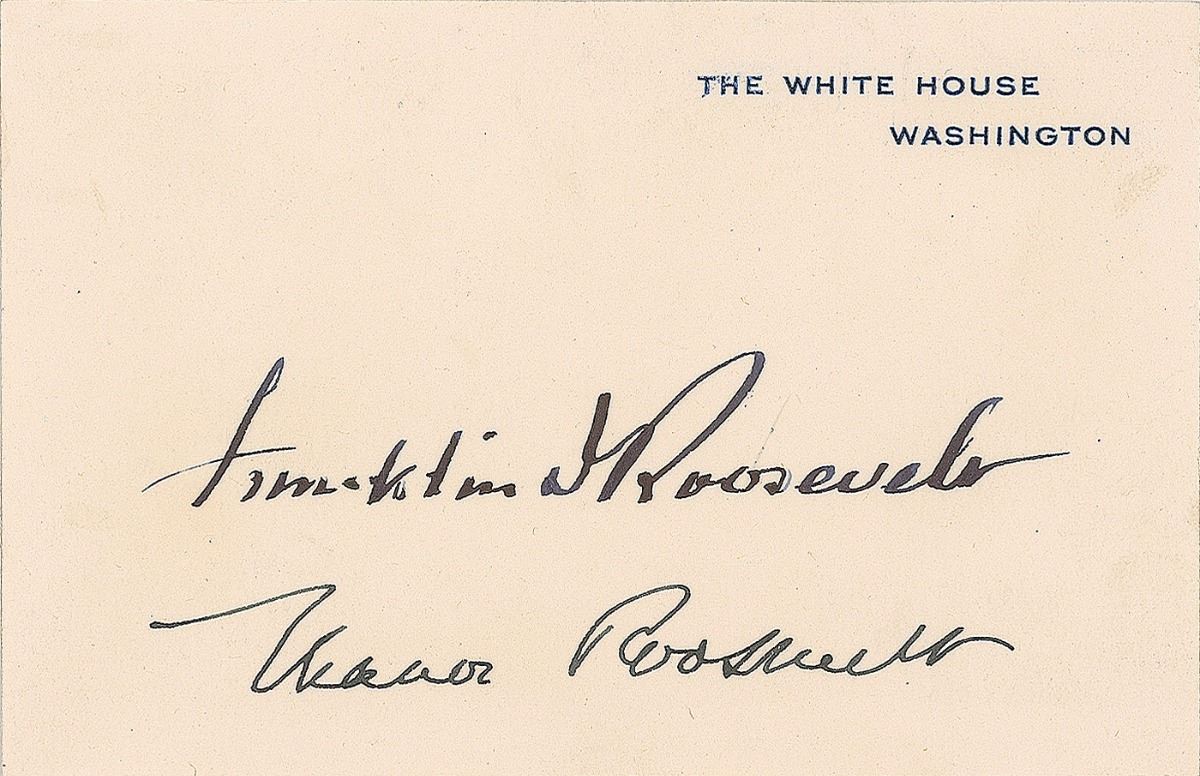 THE WHITE HOUSE
WASHINGTON
Franklin D Roosevelt
Eleanor Roosevelt